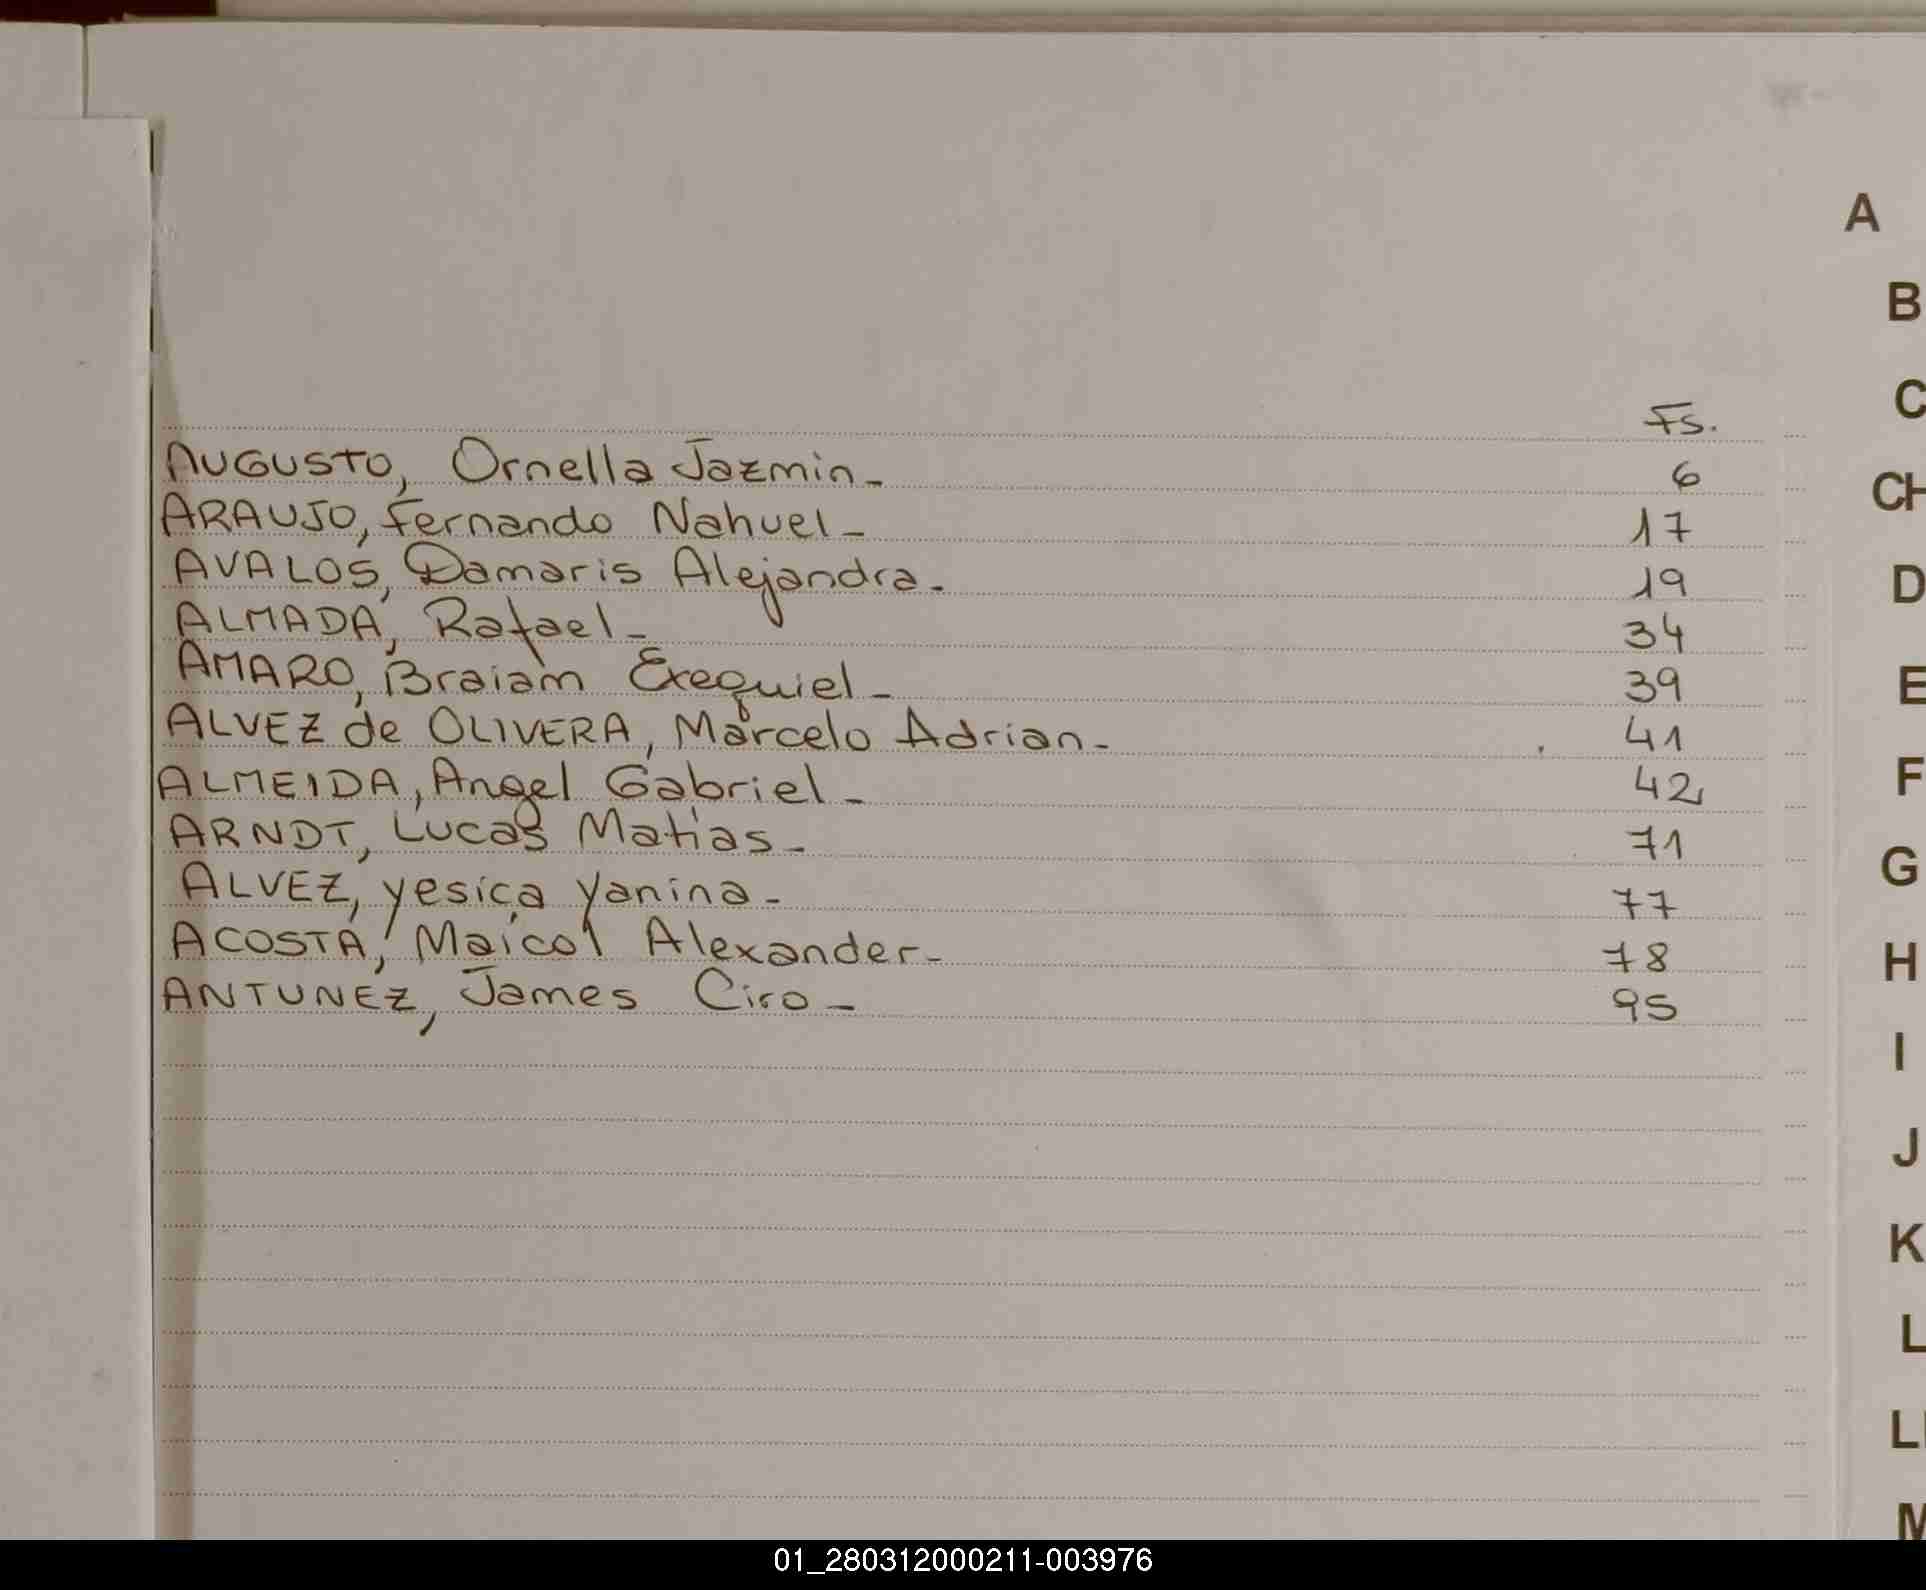 A
B
C
Fs.
AUGUSTO, Ornella Jazmin- 6
CH
ARAUJO, Fernando Nahuel- 17
AVALOS, Damaris Alejandra- 19
D
ALMADA, Rafael- 34
AMARO, Braiam Exequiel- 39
E
ALVEZ de OLIVERA, Marcelo Adrian- 41
ALMEIDA, Angel Gabriel- 42
F
ARNDT, Lucas Matias- 71
G
ALVEZ, Yesica Yanina- 77
ACOSTA, Maicol Alexander- 78
H
ANTUNEZ, James Ciro- 95
I
J
K
L
LL
M
01_280312000211-003976